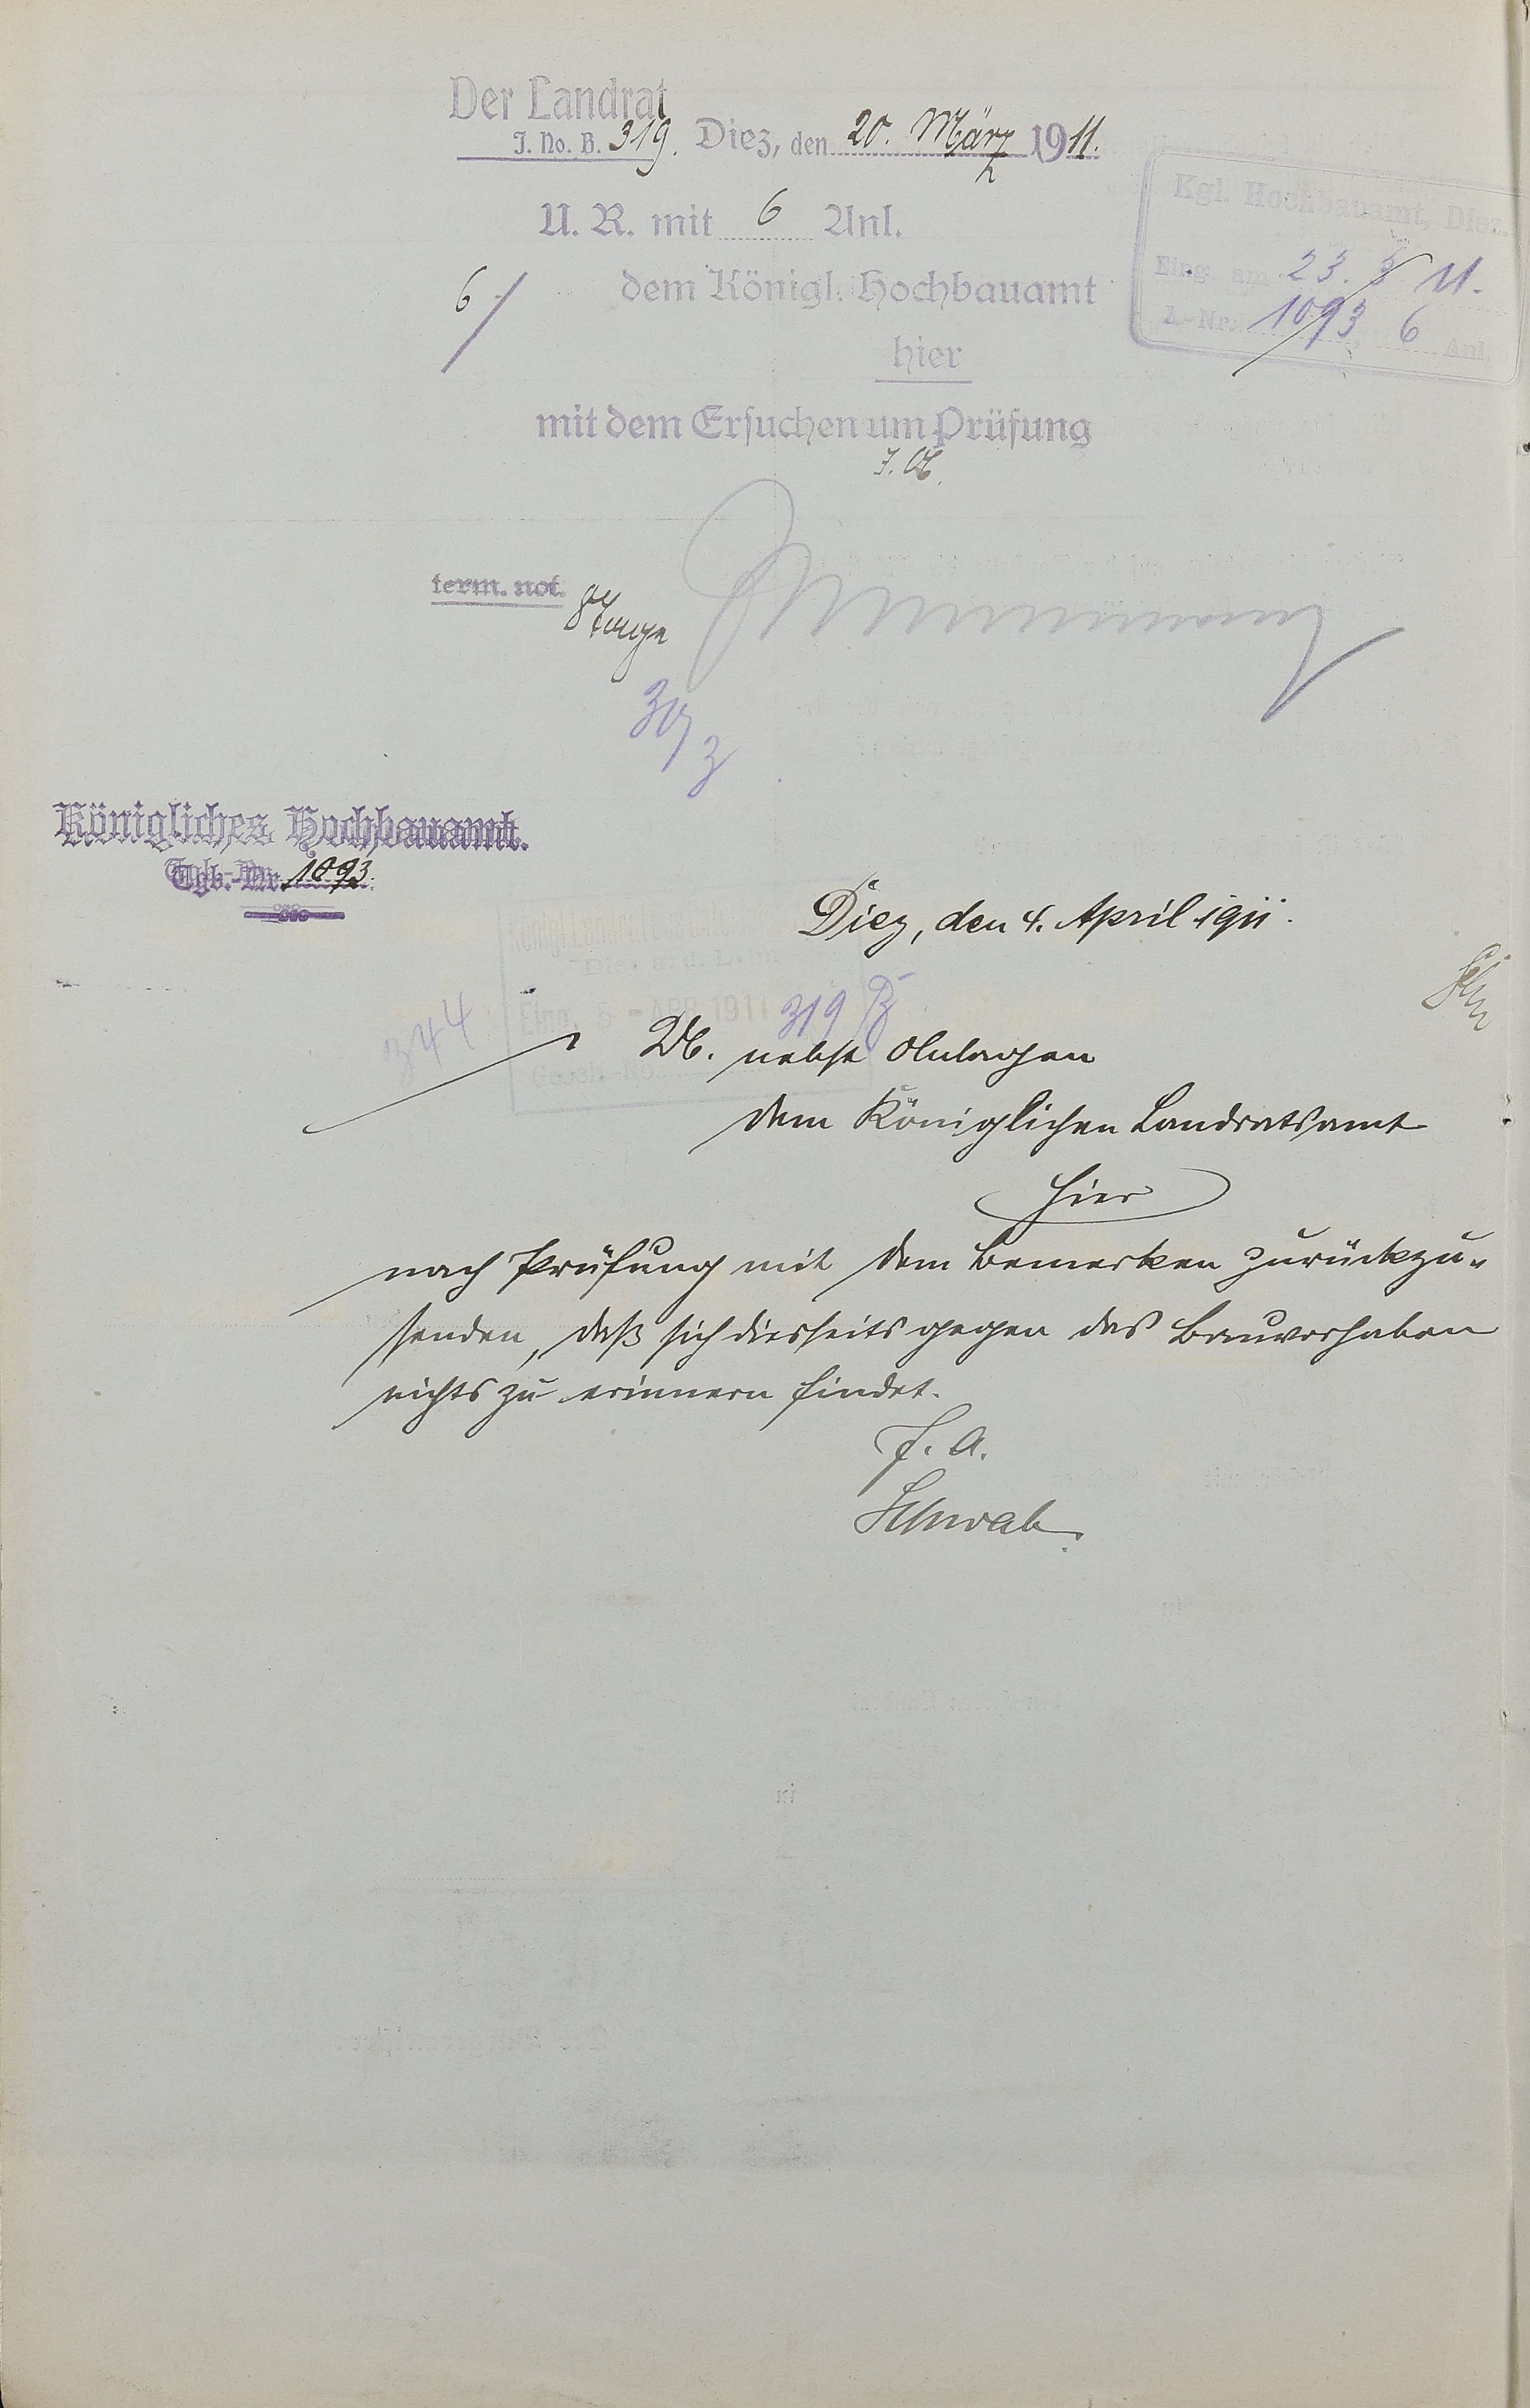 Der Landrat
J. No. B. 319. Diez, den 20. März 1911.
U. R. mit 6 Anl.
6
dem Königl. Hochbauamt
hier
mit dem Ersuchen um Prüfung
Kgl. Hochbauamt, Diez.
Eing. am 23. 3 11.
J.-Nr. 1093, 6 Anl.
term. not.
8 Tage
30/3
Königliches Hochbauamt.
Tgb.-Nr. 1093.
Diez, den 4. April 1911.
Eing. 5 - APR. 1911 319 B
344
U. nebst Anlagen
dem Königlichen Landratsamt
hier
nach Prüfung mit dem Bemerken zurückzu-
senden, daß sich diesseits gegen das Bauvorhaben
nichts zu erinnern findet.
J. A.
Schwab.